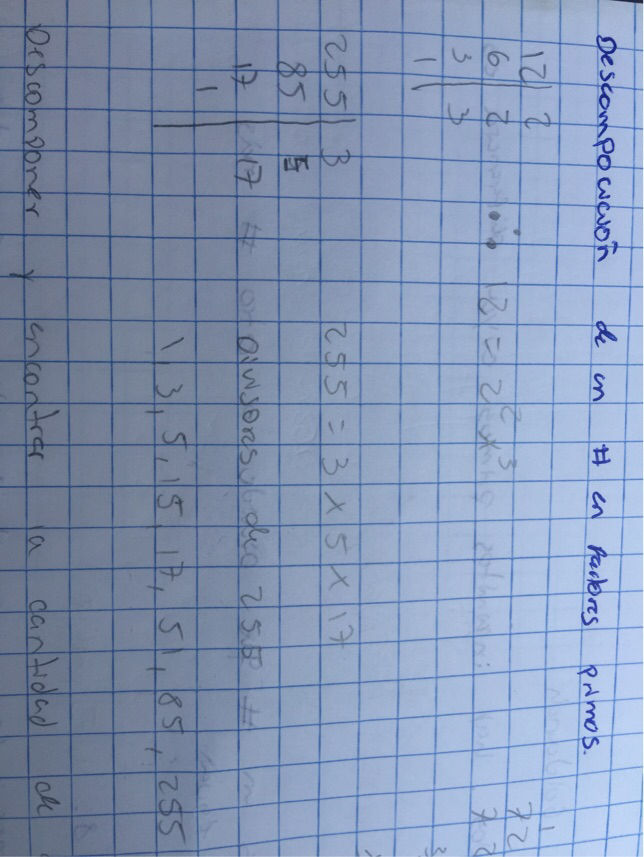 Descomposición de un # en factores primos.
12 | 2
6 | 2 ∴ 12 = 2² x 3
3 | 3
1
255 | 3 255 = 3 x 5 x 17
85 | 5
17 | 17 # divisores de 255 #
1
1, 3, 5, 15, 17, 51, 85, 255
Descomponer y encontrar la cantidad de